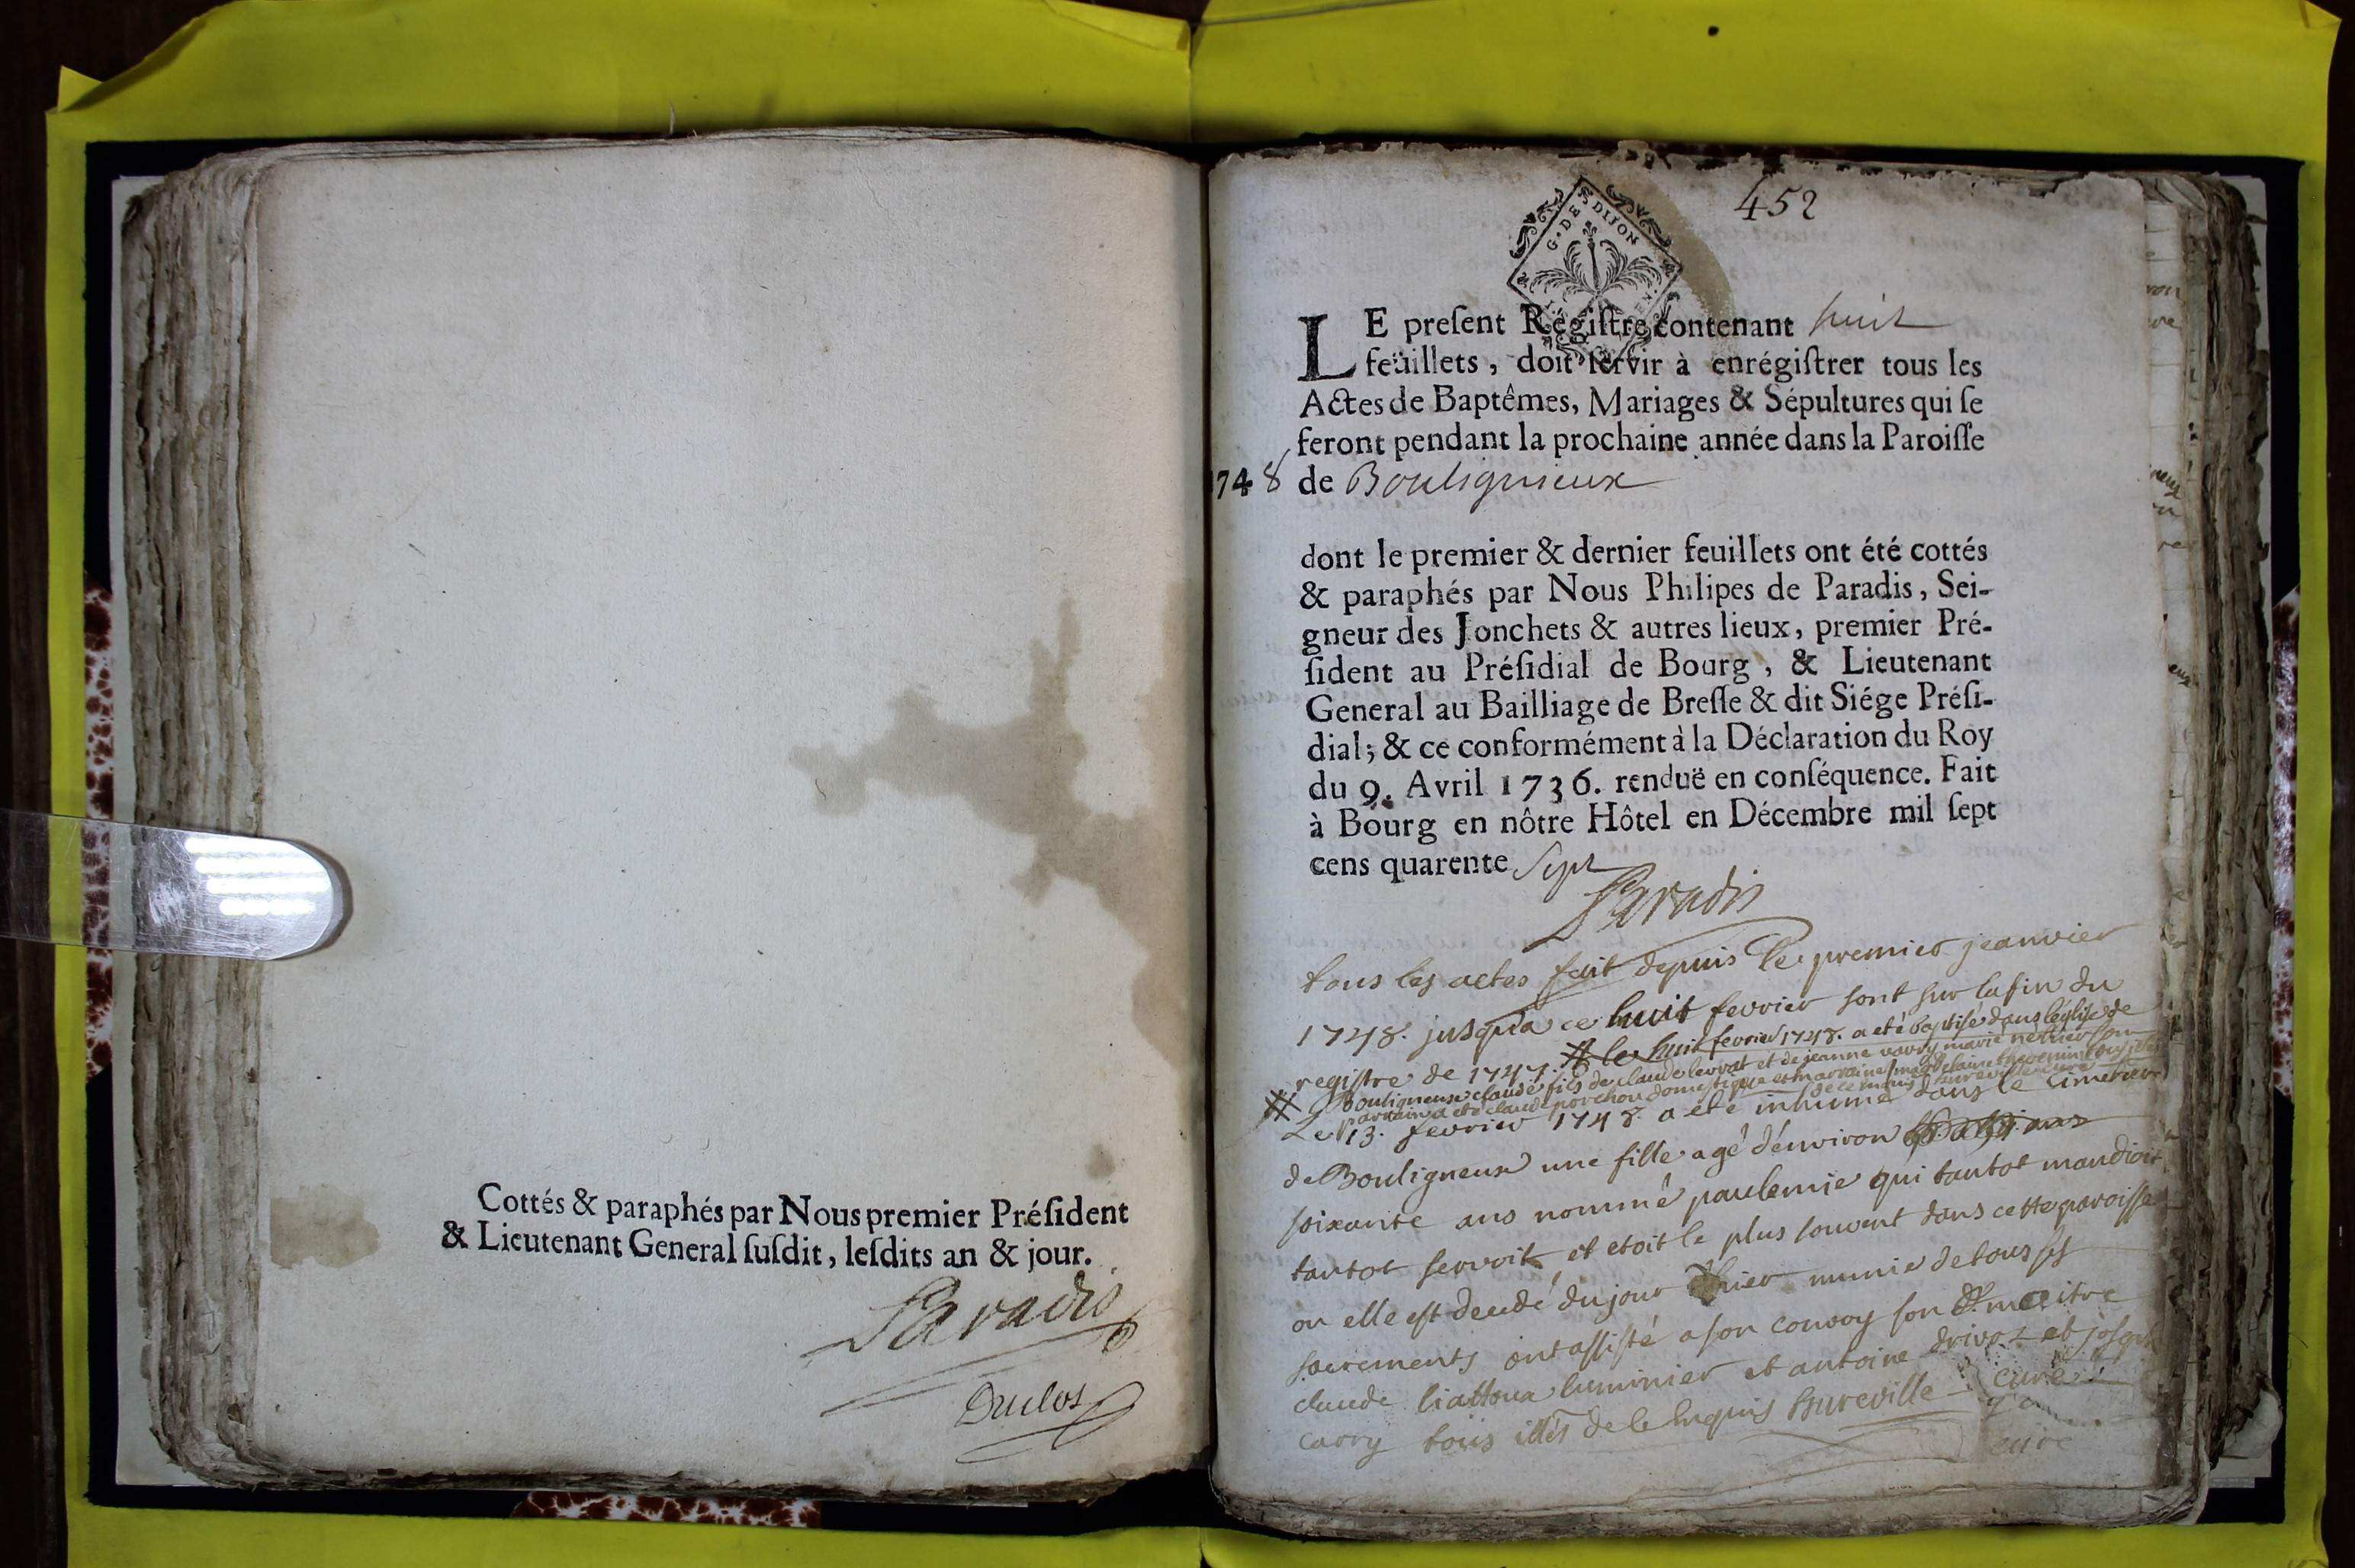 Cottés & paraphés par Nous premier Préſident
& Lieutenant General ſuſdit, leſdits an & jour.
Paradis
Duclos
452
G. DE DIJON
LE preſent Régiſtre contenant huit
feüillets, doit ſervir à enrégiſtrer tous les
Actes de Baptêmes, Mariages & Sépultures qui ſe
feront pendant la prochaine année dans la Paroiſſe
1748 de Bouligneux
dont le premier & dernier feuillets ont été cottés
& paraphés par Nous Philipes de Paradis, Sei-
gneur des Jonchets & autres lieux, premier Pré-
ſident au Préſidial de Bourg, & Lieutenant
General au Bailliage de Breſſe & dit Siége Préſi-
dial; & ce conformément à la Déclaration du Roy
du 9. Avril 1736. renduë en conſéquence. Fait
à Bourg en nôtre Hôtel en Décembre mil ſept
cens quarente Sept
Paradis
tous les actes fait depuis le premier jeanvier
1748. jusqu'a ce huit fevrier sont sur la fin du
registre de 1747. # le huit fevrier 1748. a eté baptisé dans l'église de
# Bouligneux claude fils de claude et de jeanne marie
parrain a eté claude domestique et marraine
Le 13. fevrier 1748. a eté inhumé dans le cimetiere
de Bouligneux une fille agé d'environ
soixante ans nommé paulemie qui tantot mandioit
tantot servoit et etoit le plus souvent dans cette paroisse
ou elle est decedé du jour d'hier munie de tous ses
sacrements ont assisté a son convoy son maitre
claude liattoua luminier et antoine drivoz et joseph
carry tous illés de le Bureville curé